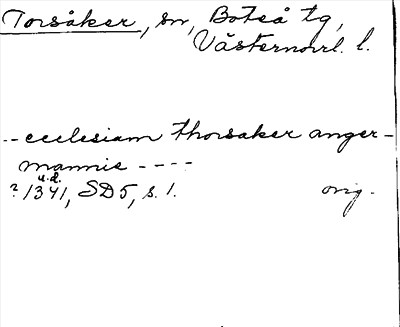 Torsåker, sn, Boteå tg,
Västernorrl. l.
-- ecclesiam thorsaker anger-
mannie ----
u.d.
? 1341, SD5, s. 1. orig.